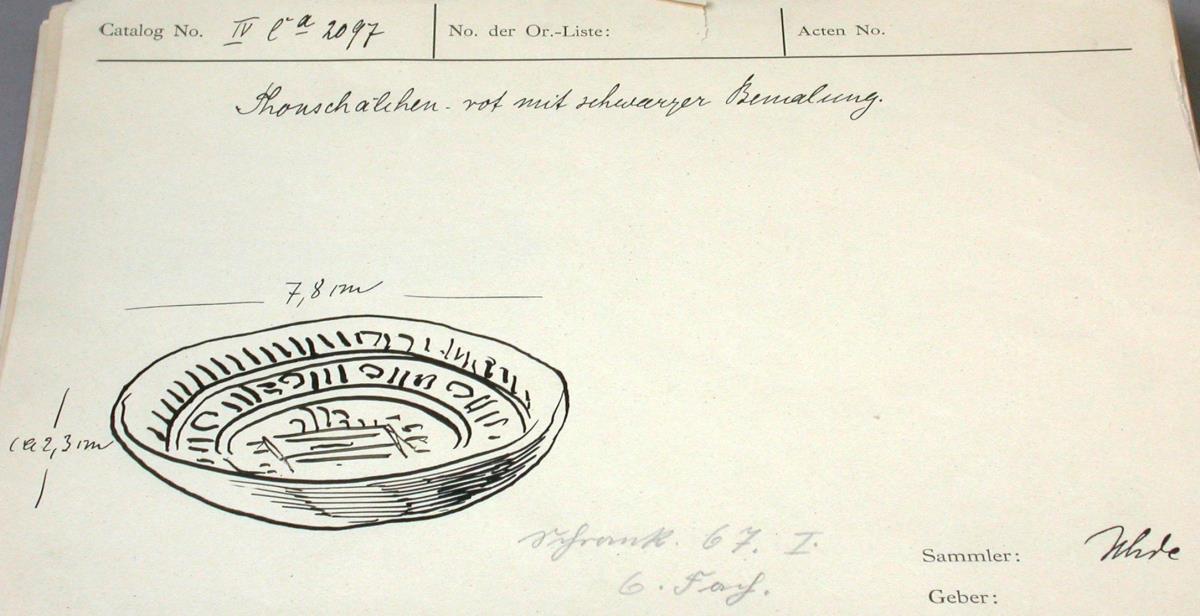 Catalog No. IV Ca 2097 No. der Or.-Liste: Acten No.
Thonschälchen - rot mit schwarzer Bemalung.
7,8 cm
ca 2,3 cm
Schrank. 67. I.
6. Fach.
Sammler: Uhde
Geber: